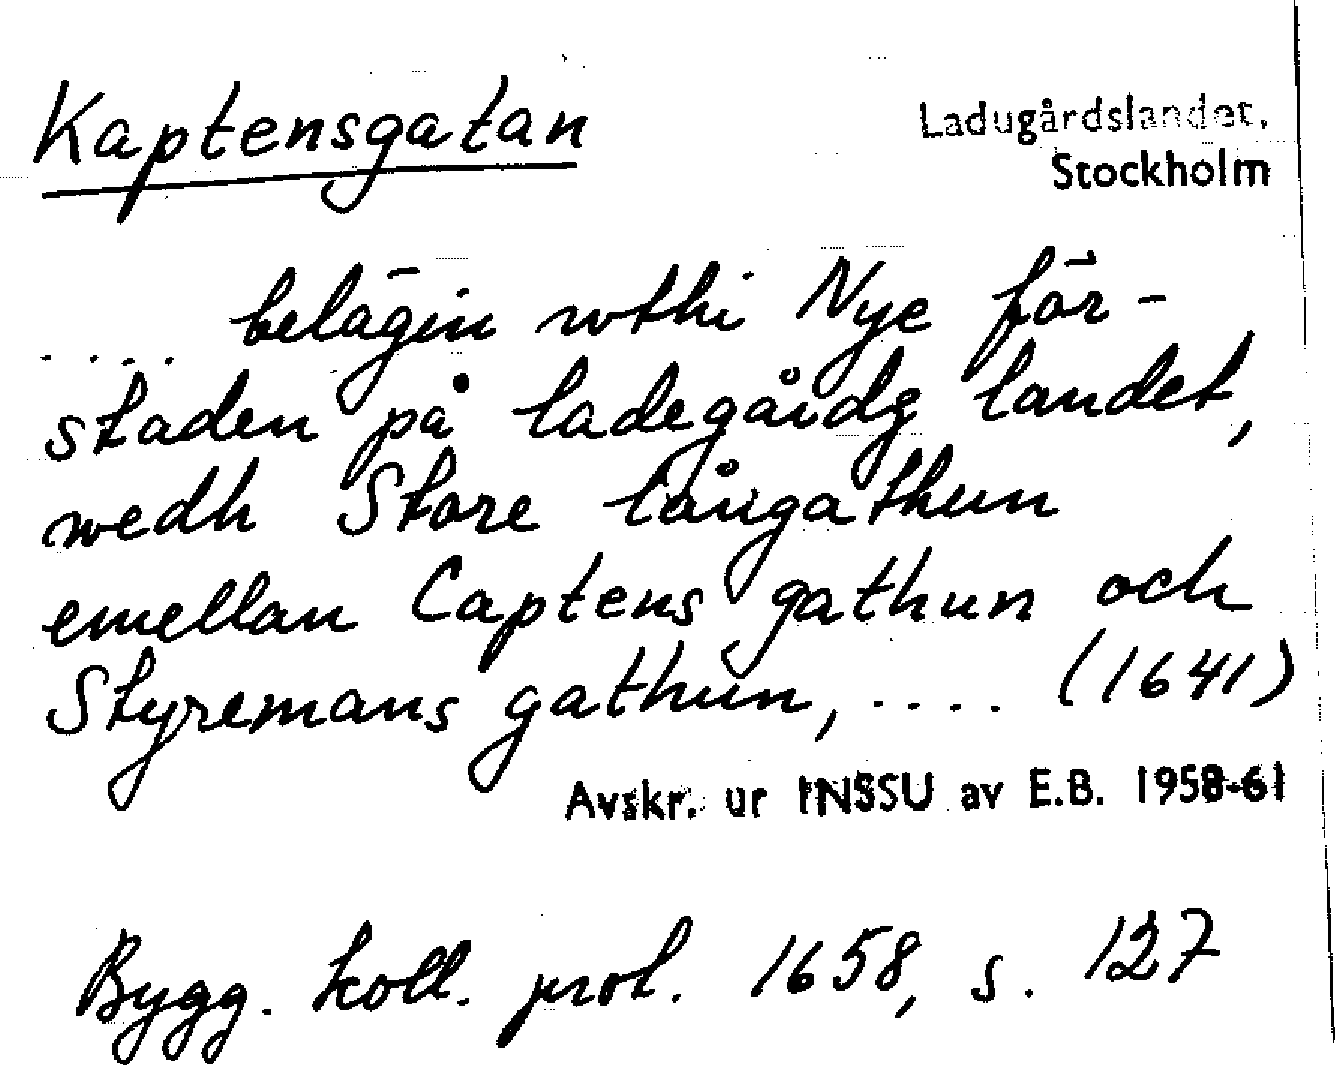 Kaptensgatan
Ladugårdslandet,
Stockholm
.... belägin wthi Nye för-
staden på ladegårdz landet,
wedh Store långathun
emellan Captens gathun och
Styremans gathun, .... (1641)
Avskr. ur INSSU av E.B. 1958-61
Bygg. koll. prot. 1658, s. 127